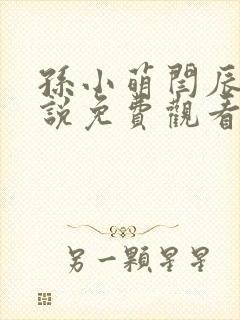 孫小萌閆辰
說免費觀看
另一顆星星